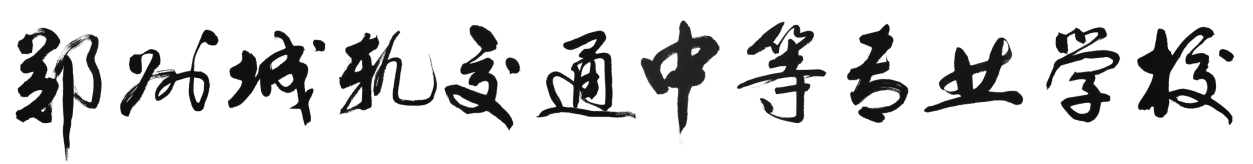 鄂州城轨交通中等专业学校